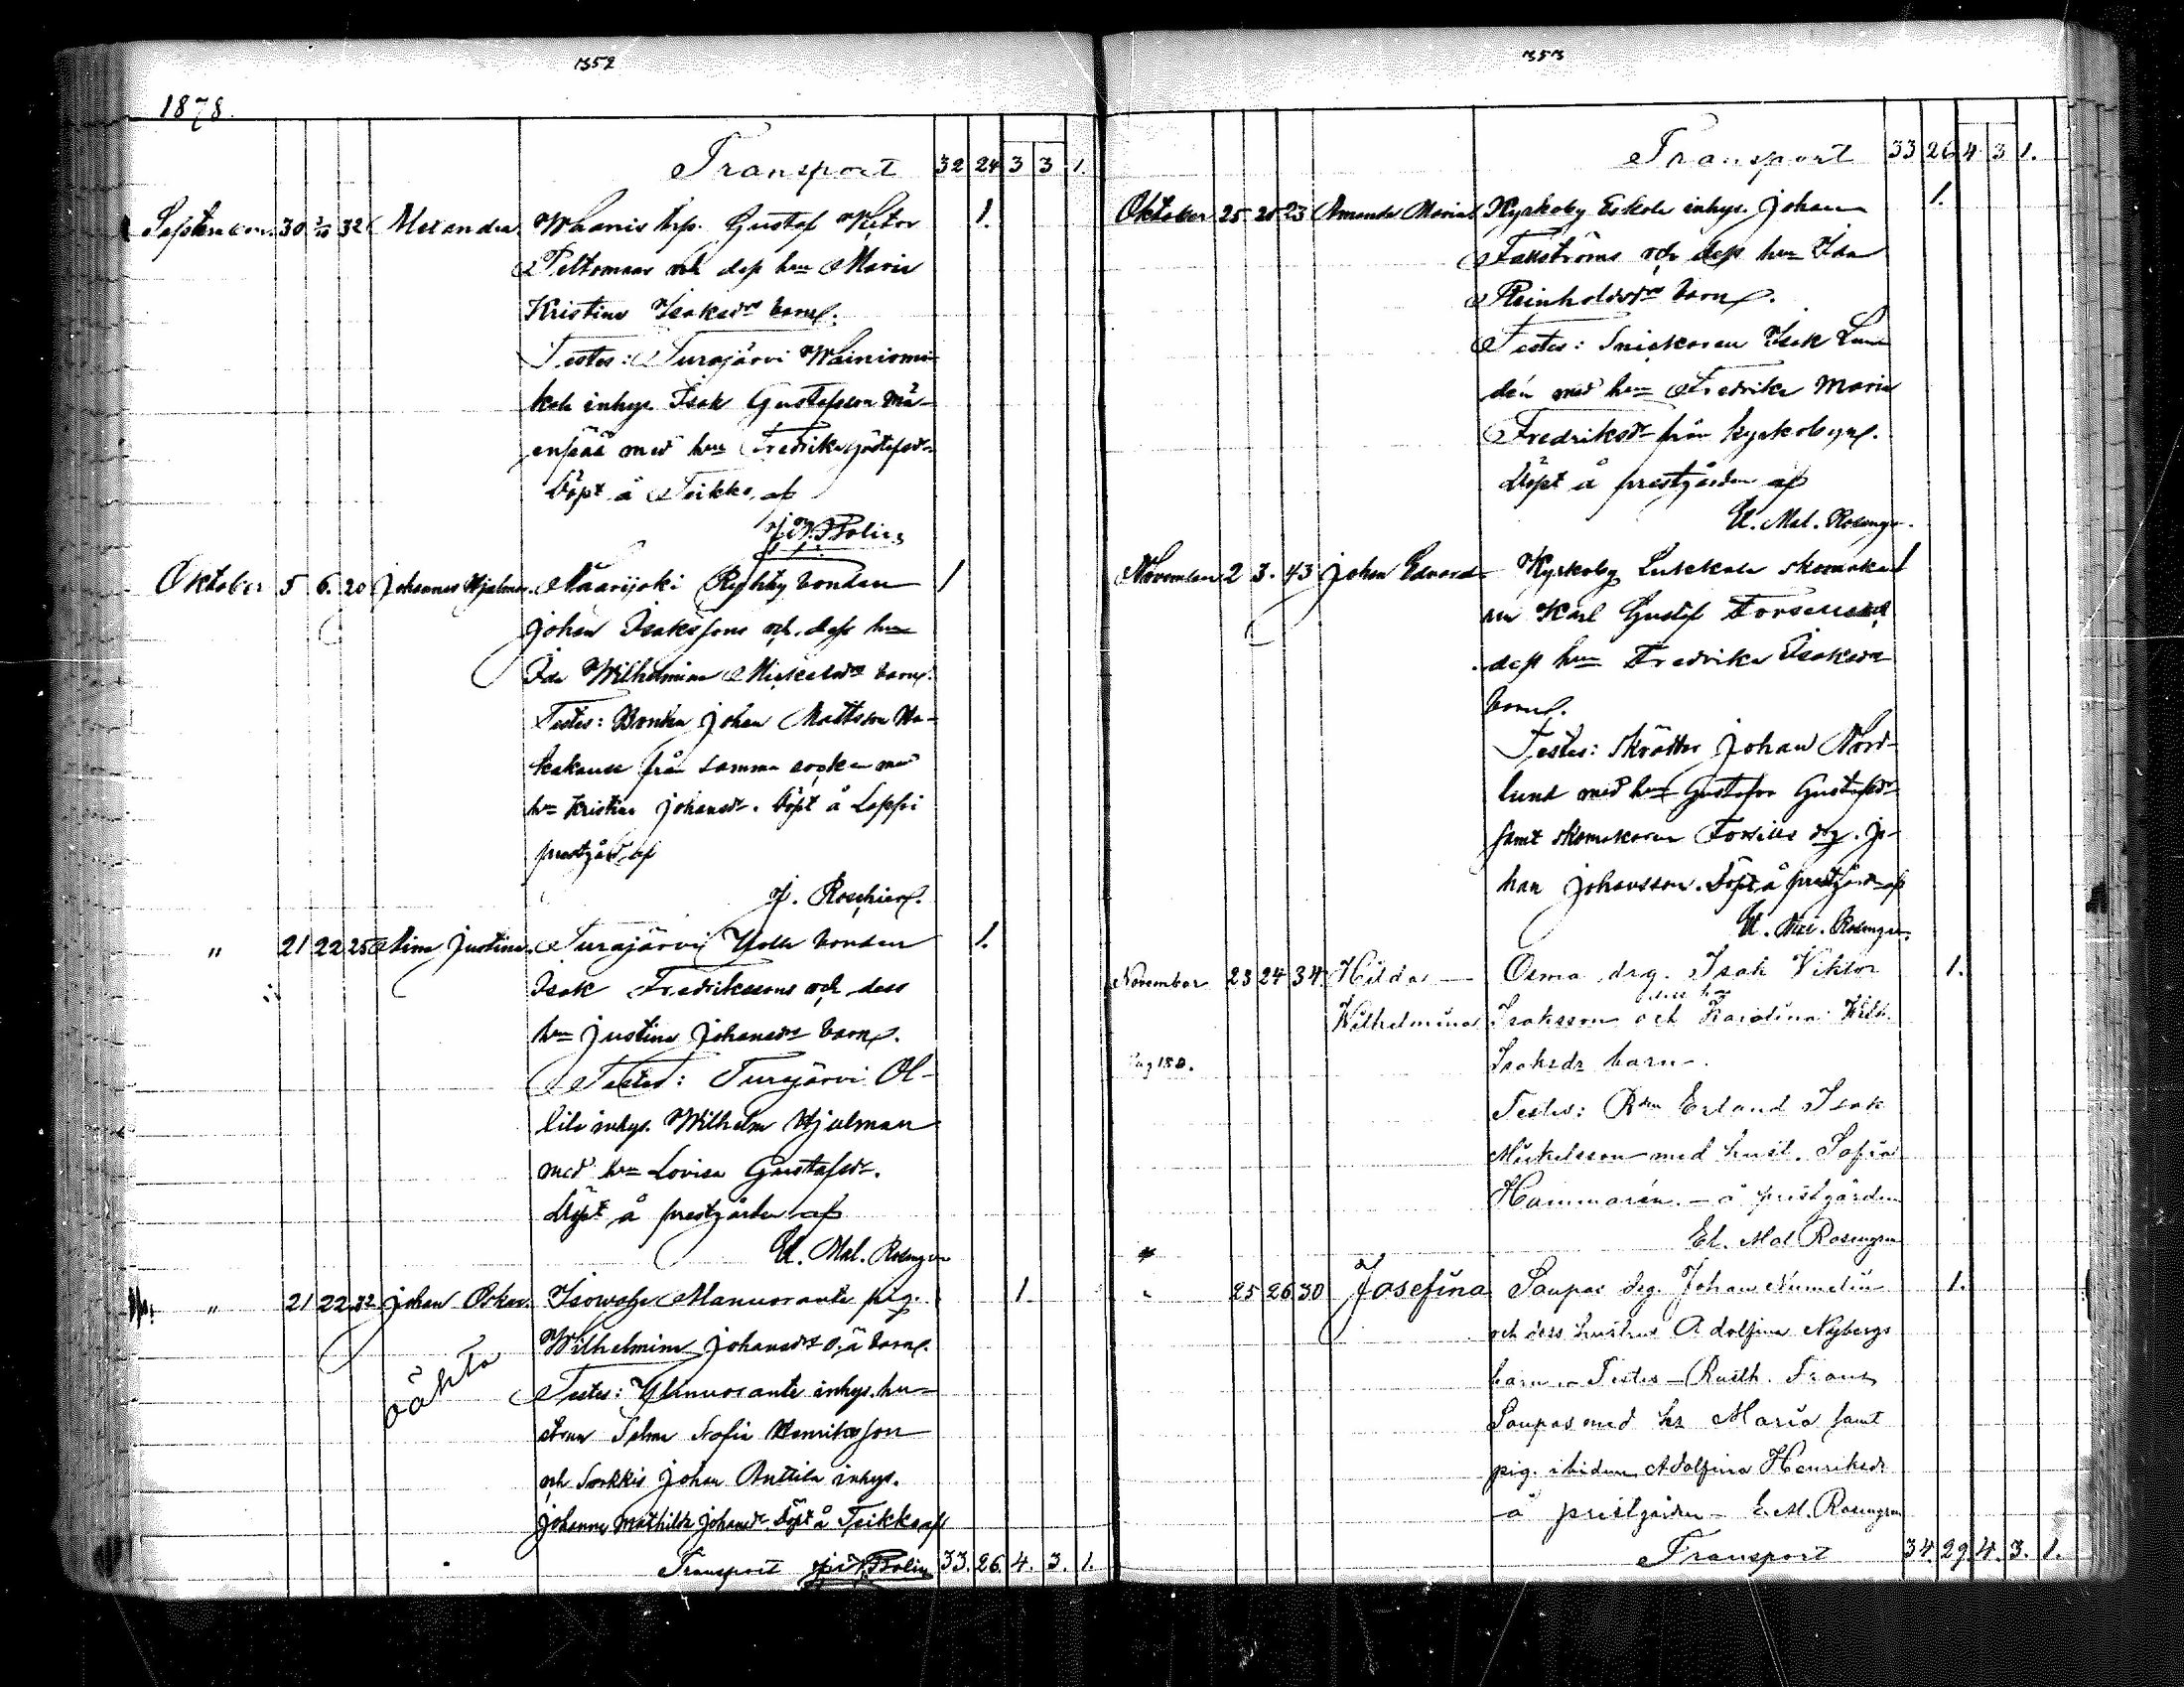 1352
1878.
Transport 32 24 3 3 1.
September. 30 2/10 32 Alexandra. Wahanis trp. Gustaf Victor 1.
Peltomaas och dess hu Maria
Kristina Isaksdrs barn.
Testes: Turajärvi Wainiomä-
kelä inhys. Isak Gustafsson Mä-
enpää med hu Fredrika Gustafsdr
Döpt å Teikko af
Bolin
Oktober 5 6. 20 Johannes Hjalmar. Naarijoki Ryhty bonden 1
Johan Isakssons och dess hu
Ida Wilhelmina Mickelsdrs barn.
Testes: Bonden Johan Mattsson
från samma socken med
hu Kristina Johansdr. Döpt å Loppi
prestgård af
J. Roschier.
" 21 22 25 Lina Justina. Turajärvi Yolle bonden 1.
Isak Fredrikssons och dess
hu Justina Johansdrs barn.
Testes: Turajärvi Ol-
lila inhys. Wilhelm Hjelman
med hu Lovisa Gustafsdr.
Döpt å prestgården af
El. Mal. Rosengren
" 21 22 32 Johan Oskar. Isowahe Mannorante pig. 1
Wilhelmina Johansdrs o.ä barn.
oäkta
Testes: inhys. hu-
strun Selma Sofia Henriksson
och Sorkkis Johan Anttila inhys.
Johanna Mathilda Johansdr. Döpt å Teikko af
Transport Bolin 33. 26. 4. 3. 1.
1353
Transport 33 26 4 3 1.
Oktober 25 26 23 Amanda Maria Kyrkoby Eskola inhys. Johan 1.
Fallströms och dess hu Ida
Reinholdsdrs barn.
Testes: Snickaren Isak Lin-
dén med hu Fredrika Maria
Fredriksdr från kyrkobyn.
Döpt å prestgården af
El. Mal. Rosengr.
November 2 3. 43 Johan Edvard Kyrkoby Lukkala skomaka- 1
ren Karl Gustaf Forsells och
dess hu Fredrika Isaksdrs
barn.
Testes: Skrädder Johan Nord-
lund med hu Gustafva Gustafsdr
samt skomakaren Forsells drg. Jo-
han Johansson. Döpt å prestgården af
El. Mal. Rosengren.
November 23 24 34 Hilda — Osma drg. Isak Viktor 1.
dess hu
Wilhelmina Isaksson och Karolina Wilh.
Pag 150. Isaksdr barn —.
Testes: Rsm Erland Isak
Mickelsson med hust. Sofia
Hammarén. — å prestgården
El. Mal Rosengren
" 25 26 30 Josefina Saupas drg. Johan Numelin 1.
och dess hustrus Adolfina Nybergs
barn — Testes — Rusth. Frans
Saupas med hr Maria samt
pig. ibidem Adolfina Henriksdr
å prestgården — E. M. Rosengren
Transport 34 29. 4. 3. 1.